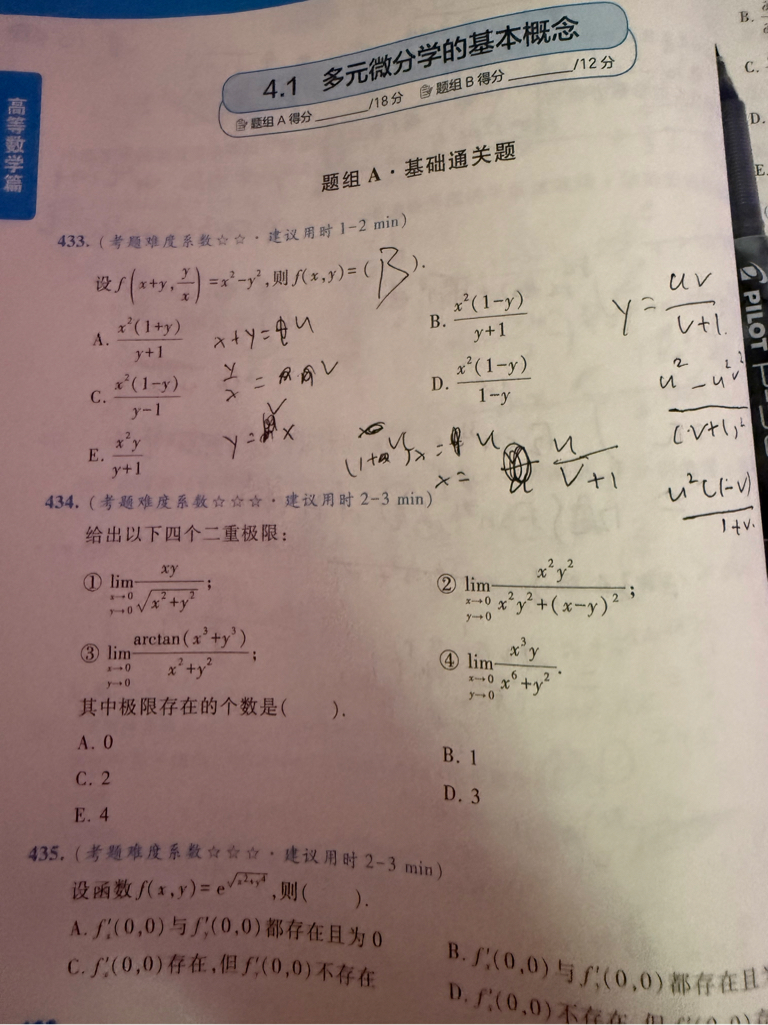 高等数学篇
4.1 多元微分学的基本概念
题组A得分 ______/18分 题组B得分 ______/12分
题组 A·基础通关题
433. (考题难度系数☆☆·建议用时 1-2 min)
设 f(x+y, y/x) = x²-y², 则 f(x,y) = ( B ).
A. x²(1+y)/(y+1)
B. x²(1-y)/(y+1)
C. x²(1-y)/(y-1)
D. x²(1-y)/(1-y)
E. x²y/(y+1)
x+y= u
y/x = v
y= v x
x= u/(v+1)
y= uv/(v+1)
(u²-u²v²)/(v+1)²
u²(1-v)/(1+v)
434. (考题难度系数☆☆☆·建议用时 2-3 min)
给出以下四个二重极限:
① lim x→0 y→0 xy/√(x²+y²);
② lim x→0 y→0 x²y²/(x²y²+(x-y)²);
③ lim x→0 y→0 arctan(x³+y³)/(x²+y²);
④ lim x→0 y→0 x³y/(x⁶+y²).
其中极限存在的个数是( ).
A. 0
B. 1
C. 2
D. 3
E. 4
435. (考题难度系数☆☆☆·建议用时 2-3 min)
设函数 f(x,y) = e^√(x²+y⁴), 则( ).
A. f′ₓ(0,0)与 f′ᵧ(0,0)都存在且为 0
B. f′ₓ(0,0)与 f′ᵧ(0,0)都存在且
C. f′ₓ(0,0)存在,但 f′ᵧ(0,0)不存在
D. f′ₓ(0,0)不存在,但 f′ᵧ(0,0)存
B.
C.
D.
E.
PILOT